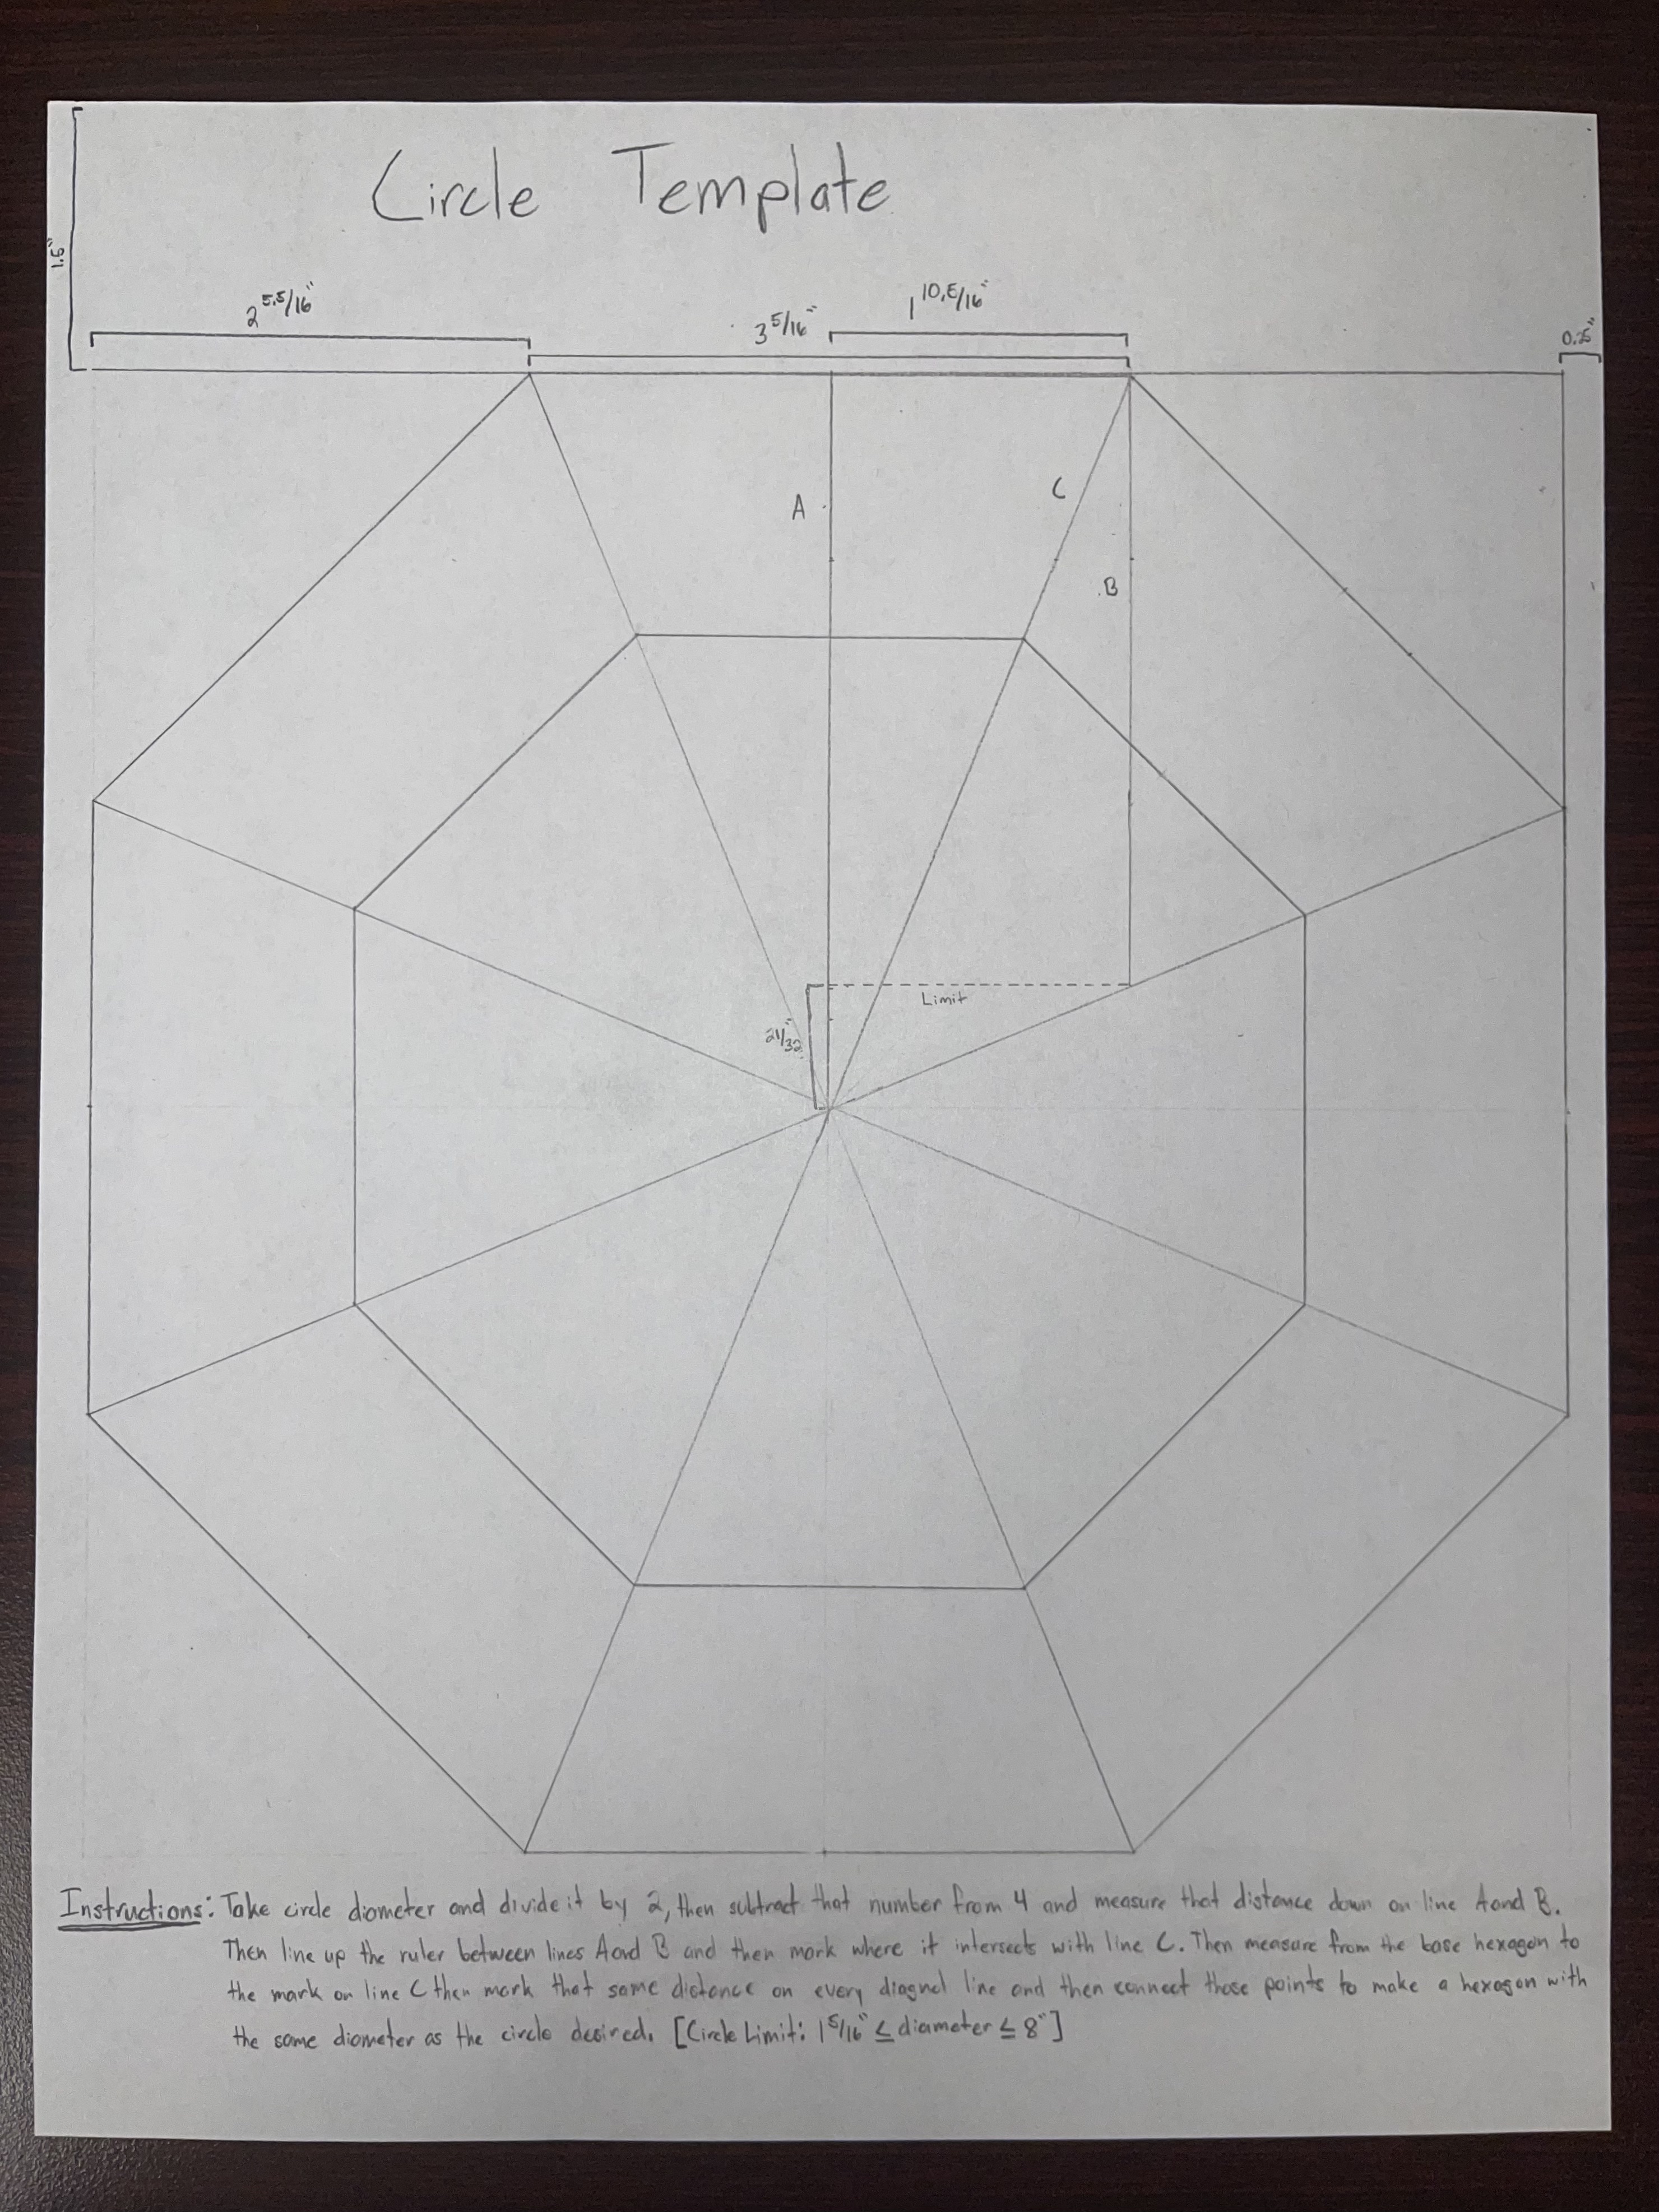 Circle Template
1.5"
2 5.5/16"
3 5/16"
1 10.5/16"
0.25"
A
C
B
Limit
21/32"
Instructions: Take circle diometer and divide it by 2, then subtract that number from 4 and measure that distance down on line A and B.
Then line up the ruler between lines A and B and then mark where it intersects with line C. Then measure from the base hexagon to
the mark on line C then mark that same distance on every diagnol line and then connect those points to make a hexagon with
the same diometer as the circle desired. [Circle Limit: 1 5/16" ≤ diameter ≤ 8"]